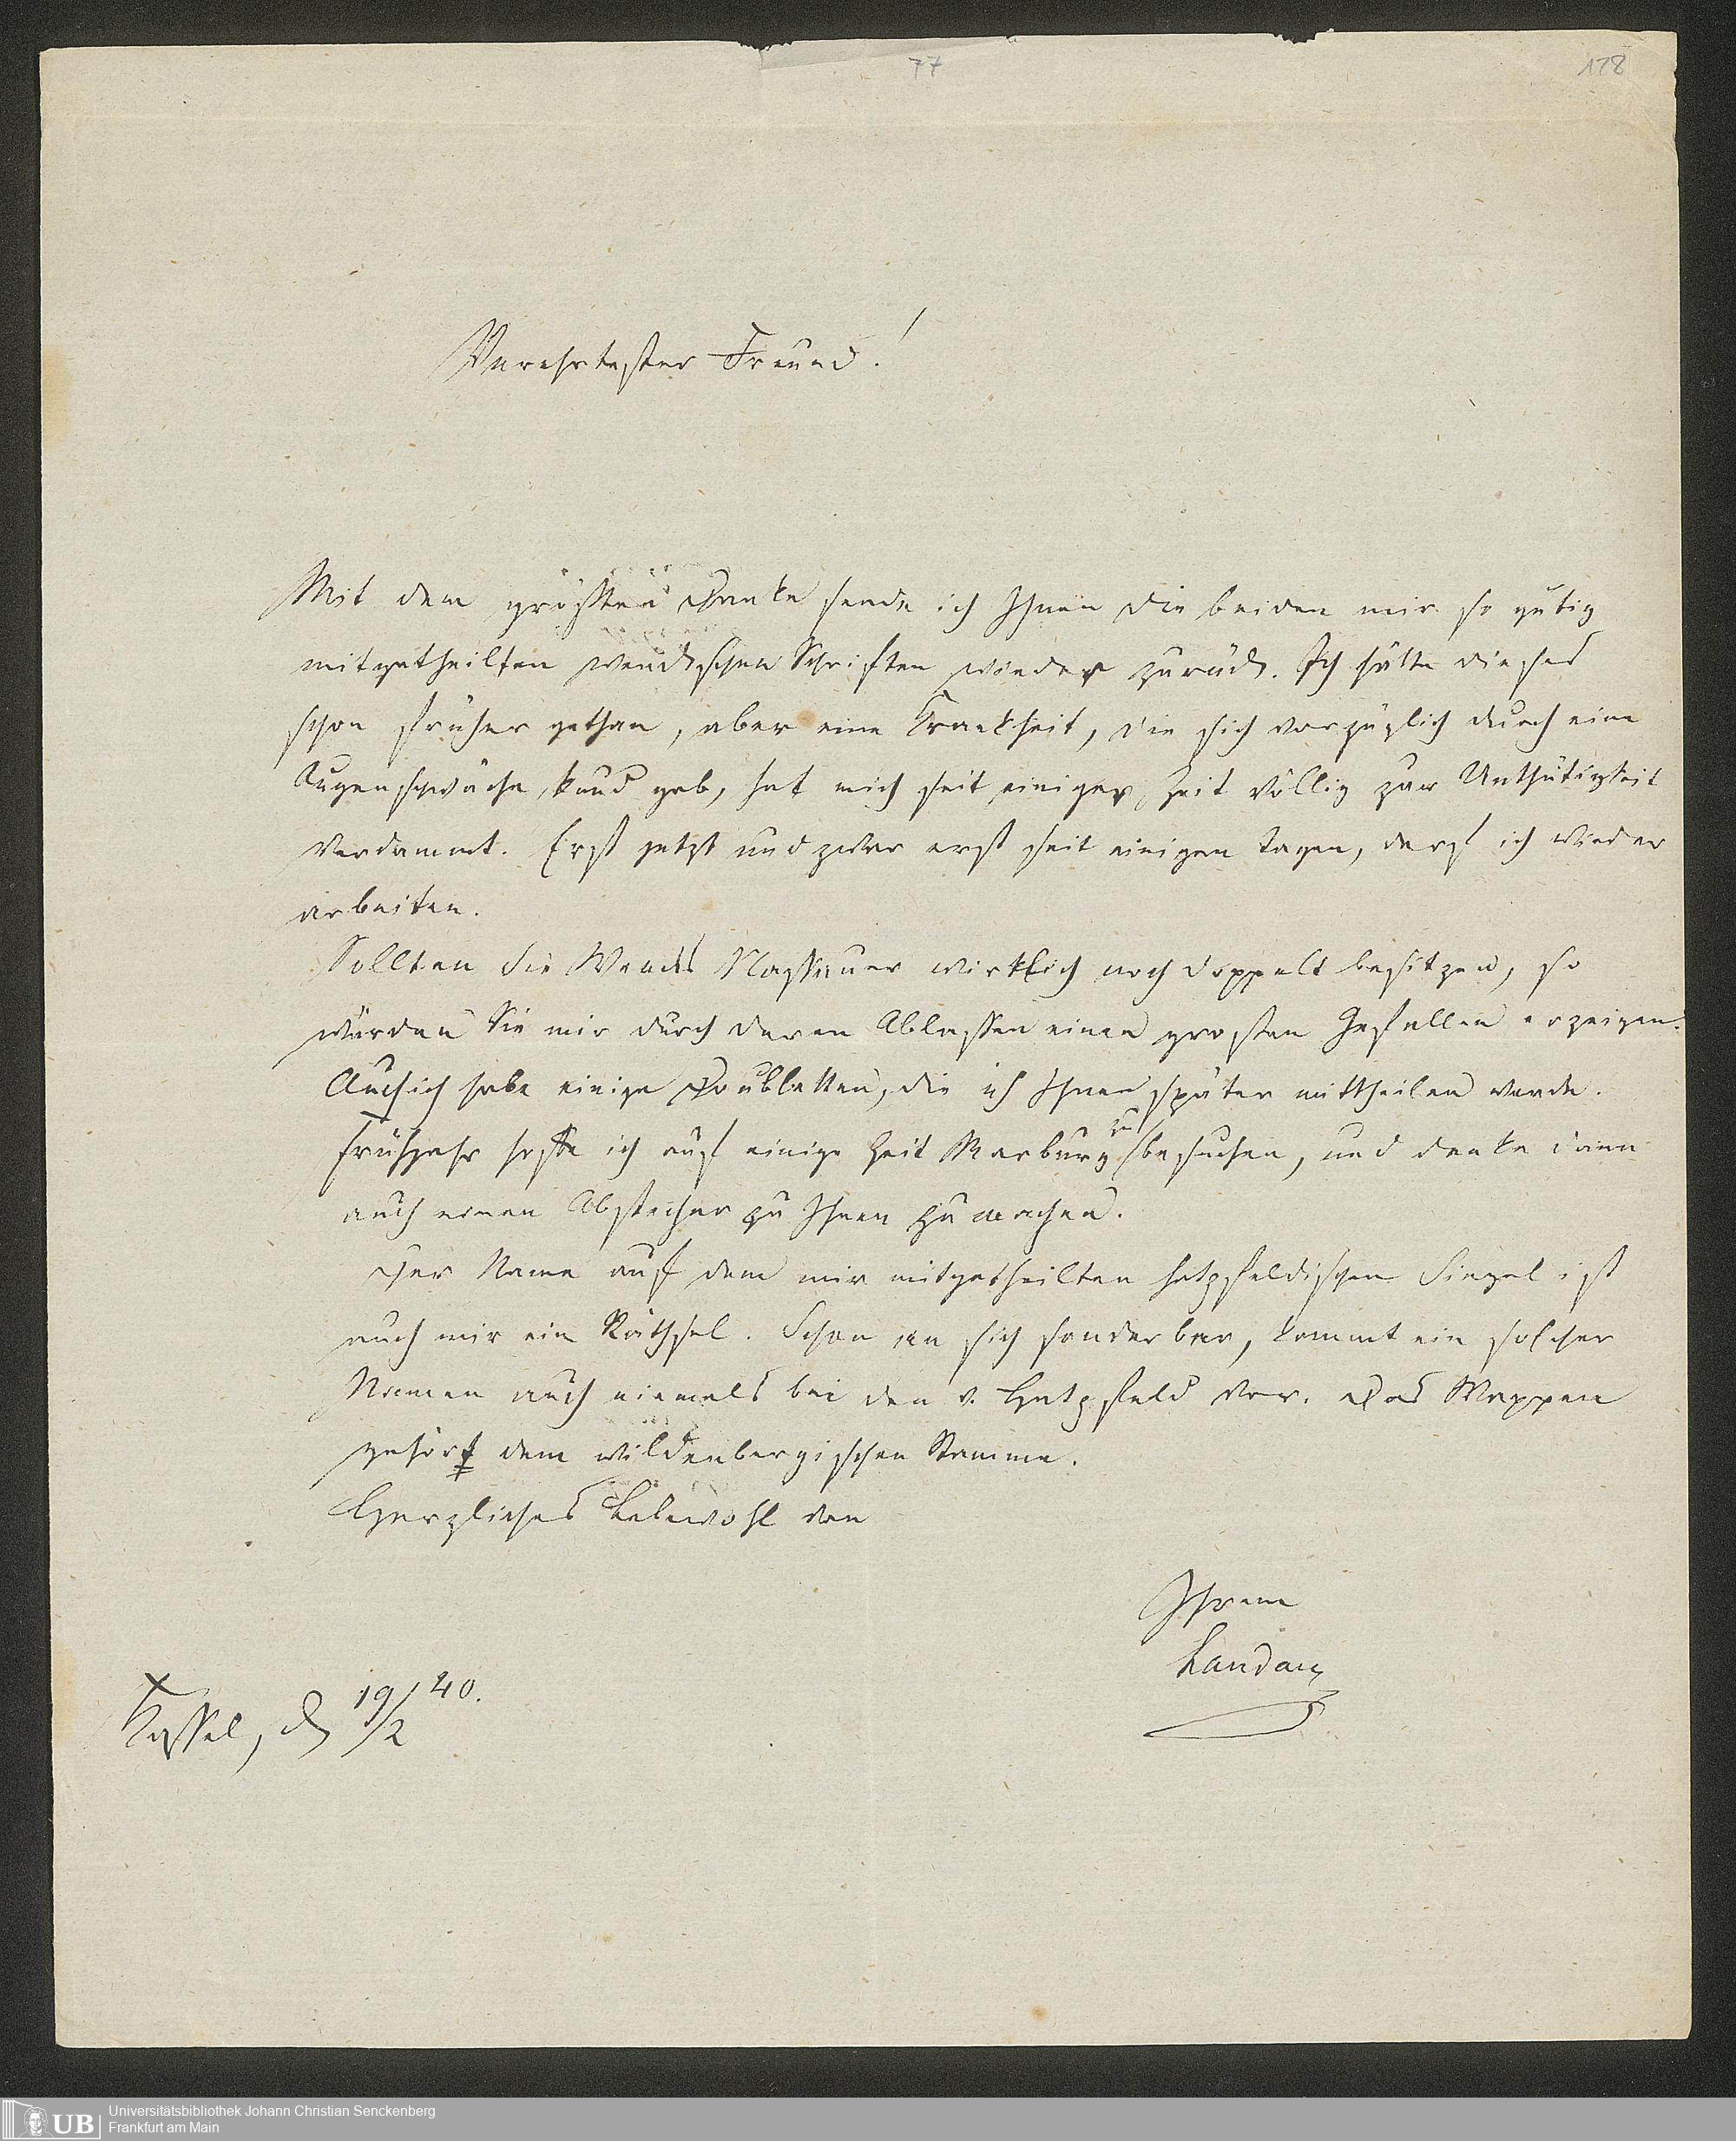 77
118
Verehrtester Freund!
Mit dem größten Danke sende ich Ihnen die beiden mir so gütig
mitgetheilten wenckschen Schriften wieder zurück. Ich hätte dieses
schon früher gethan, aber eine Krankheit, die sich vorzüglich durch eine
Augenschwäche kund gab, hat mich seit einiger Zeit völlig zur Unthätigkeit
verdammt. Erst jetzt und zwar erst seit einigen Tagen, darf ich wieder
arbeiten.
Sollten Sie Wencks Nassauer wirklich noch doppelt besitzen, so
würden Sie mir durch deren Ablassen einen großen Gefallen erzeigen.
Auch ich habe einige Doubletten, die ich Ihnen später mittheilen werde.
Frühjahr hoffe ich auf einige Zeit Marburg zu besuchen, und denke dann
auch einen Abstecher zu Ihnen zu machen.
Der Name auf dem mir mitgetheilten hatzfeldischen Siegel ist
auch mir ein Räthsel. Schon an sich sonderbar, kommt ein solcher
Namen auch niemals bei den v. Hatzfeld vor. Das Wappen
gehört dem wildenbergischen Stamme.
Herzliches Lebewohl von
Ihrem
Landau
Kassel, d 19/2 40.
Universitätsbibliothek Johann Christian Senckenberg
UB
Frankfurt am Main